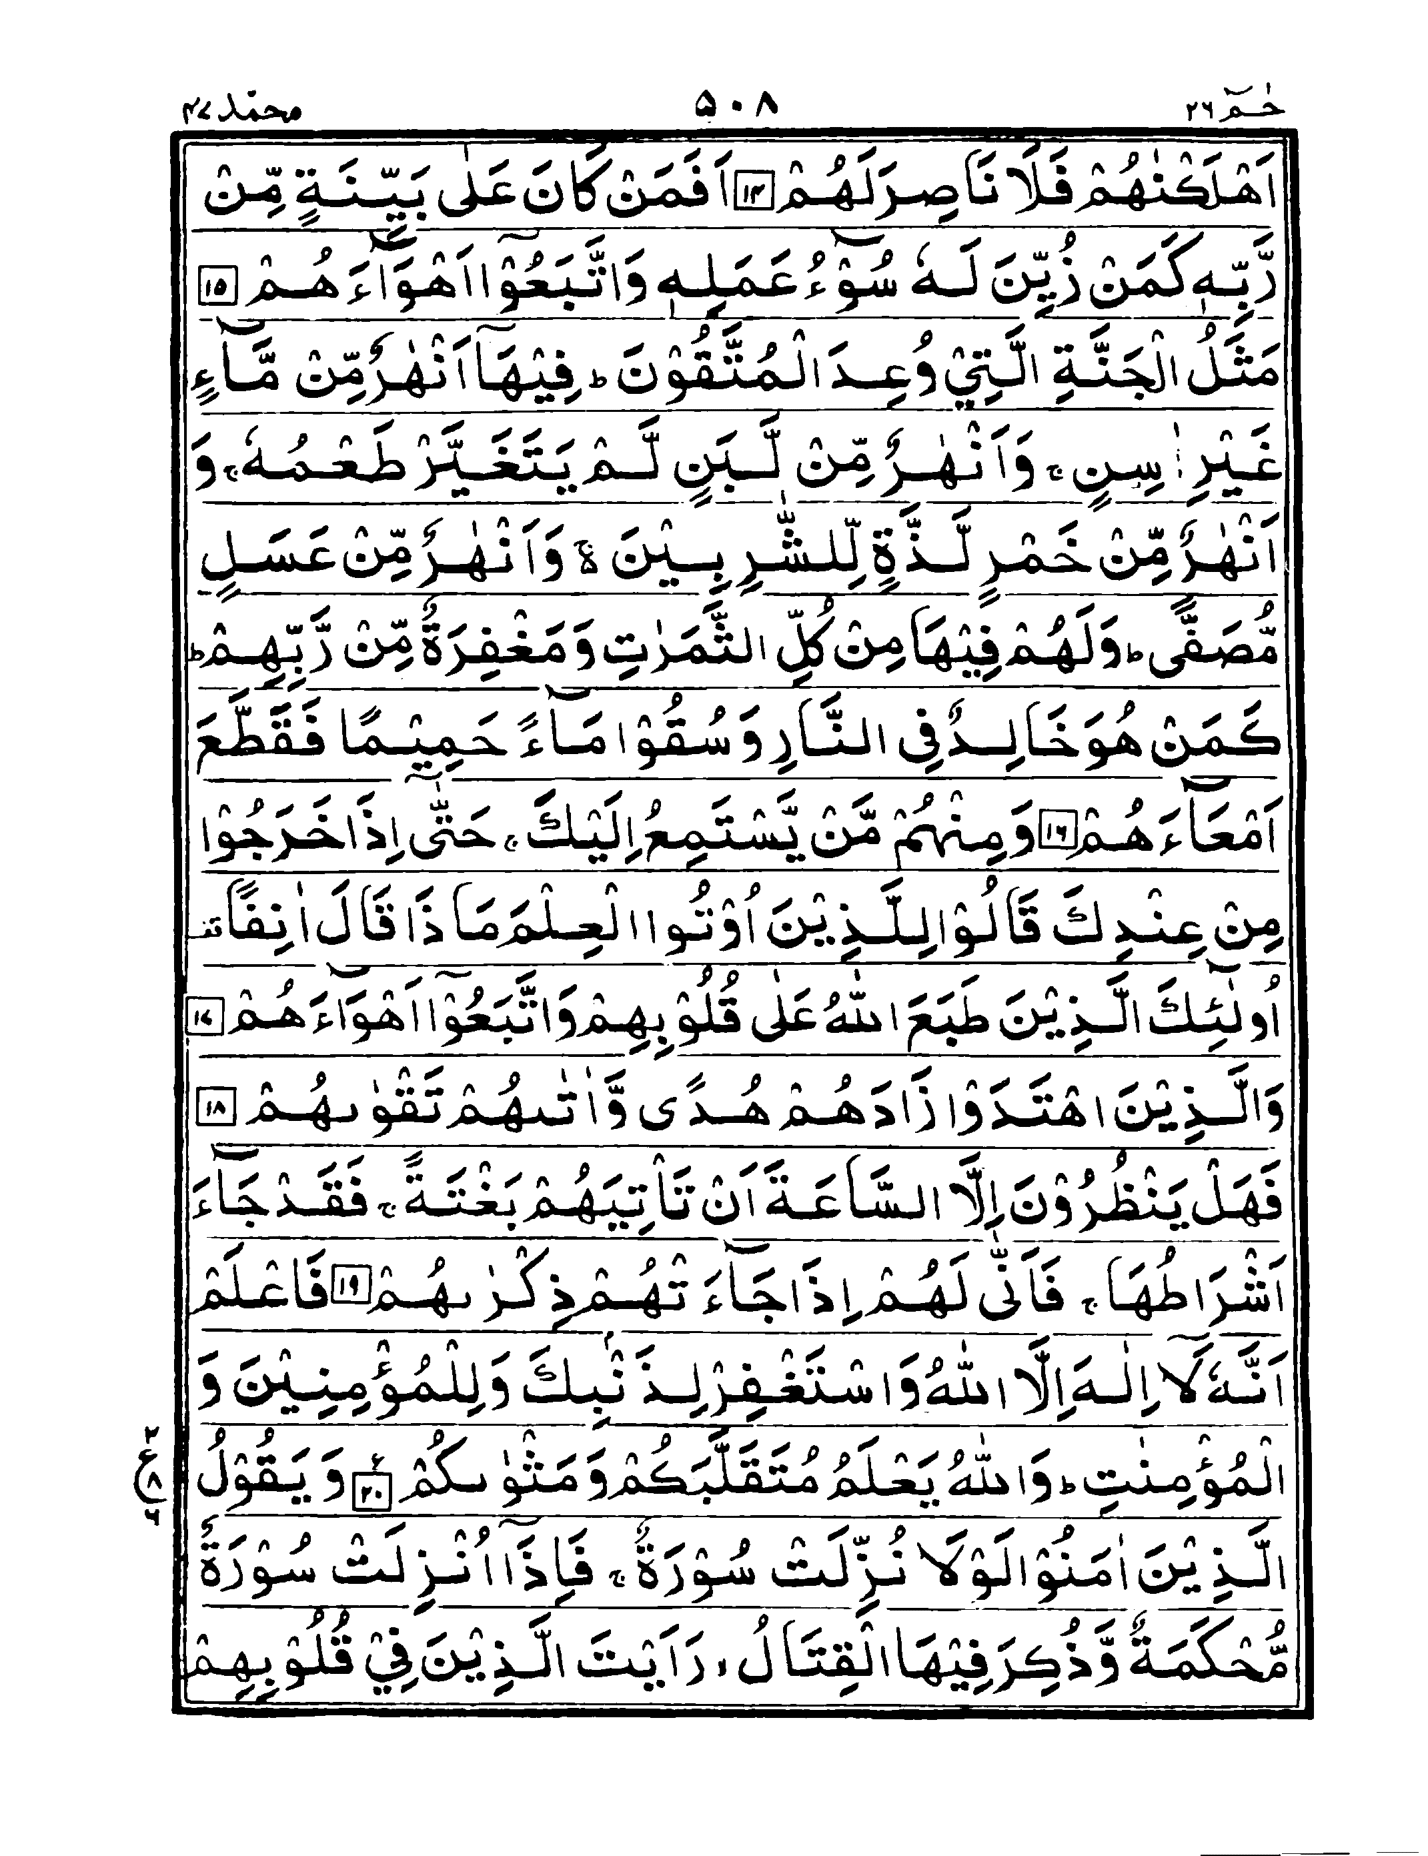 حٰمٓ ٢٦ ۵۰۸ محمّد ۴۷
اَهْلَكْنٰهُمْ فَلَا نَاصِرَ لَهُمْ ۱۴ اَفَمَنْ كَانَ عَلٰى بَيِّنَةٍ مِّنْ
رَّبِّهٖ كَمَنْ زُيِّنَ لَهٗ سُوْٓءُ عَمَلِهٖ وَاتَّبَعُوْٓا اَهْوَآءَهُمْ ۱۵
مَثَلُ الْجَنَّةِ الَّتِيْ وُعِدَ الْمُتَّقُوْنَ ؕ فِيْهَآ اَنْهٰرٌ مِّنْ مَّآءٍ
غَيْرِ اٰسِنٍ ۚ وَاَنْهٰرٌ مِّنْ لَّبَنٍ لَّمْ يَتَغَيَّرْ طَعْمُهٗ ۚ وَ
اَنْهٰرٌ مِّنْ خَمْرٍ لَّذَّةٍ لِّلشّٰرِبِيْنَ ۚ۬ وَاَنْهٰرٌ مِّنْ عَسَلٍ
مُّصَفًّى ؕ وَلَهُمْ فِيْهَا مِنْ كُلِّ الثَّمَرٰتِ وَمَغْفِرَةٌ مِّنْ رَّبِّهِمْ ؕ
كَمَنْ هُوَ خَالِدٌ فِى النَّارِ وَسُقُوْا مَآءً حَمِيْمًا فَقَطَّعَ
اَمْعَآءَهُمْ ۱۶ وَمِنْهُمْ مَّنْ يَّسْتَمِعُ اِلَيْكَ ۚ حَتّٰٓى اِذَا خَرَجُوْا
مِنْ عِنْدِكَ قَالُوْا لِلَّذِيْنَ اُوْتُوا الْعِلْمَ مَاذَا قَالَ اٰنِفًا قف
اُولٰٓئِكَ الَّذِيْنَ طَبَعَ اللّٰهُ عَلٰى قُلُوْبِهِمْ وَاتَّبَعُوْٓا اَهْوَآءَهُمْ ۱۷
وَالَّذِيْنَ اهْتَدَوْا زَادَهُمْ هُدًى وَّاٰتٰىهُمْ تَقْوٰىهُمْ ۱۸
فَهَلْ يَنْظُرُوْنَ اِلَّا السَّاعَةَ اَنْ تَاْتِيَهُمْ بَغْتَةً ۚ فَقَدْ جَآءَ
اَشْرَاطُهَا ۚ فَاَنّٰى لَهُمْ اِذَا جَآءَتْهُمْ ذِكْرٰىهُمْ ۱۹ فَاعْلَمْ
اَنَّهٗ لَآ اِلٰهَ اِلَّا اللّٰهُ وَاسْتَغْفِرْ لِذَنْۢبِكَ وَلِلْمُؤْمِنِيْنَ وَ
الْمُؤْمِنٰتِ ؕ وَاللّٰهُ يَعْلَمُ مُتَقَلَّبَكُمْ وَمَثْوٰىكُمْ ع ۲۰ وَيَقُوْلُ
الَّذِيْنَ اٰمَنُوْا لَوْلَا نُزِّلَتْ سُوْرَةٌ ۚ فَاِذَآ اُنْزِلَتْ سُوْرَةٌ
مُّحْكَمَةٌ وَّذُكِرَ فِيْهَا الْقِتَالُ ۙ رَاَيْتَ الَّذِيْنَ فِيْ قُلُوْبِهِمْ